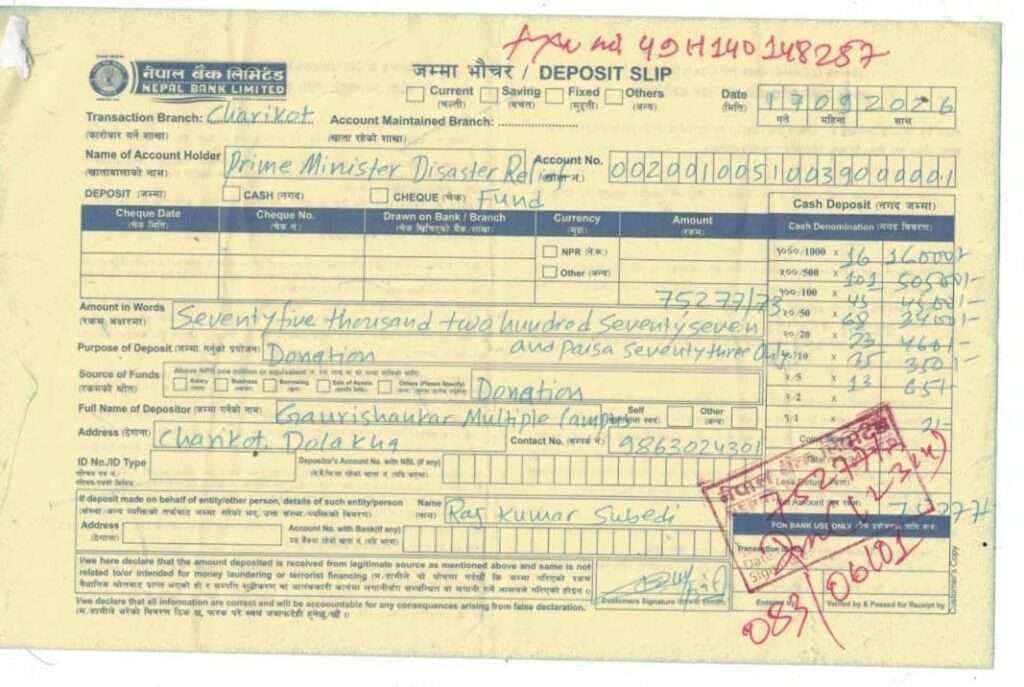 Axn no 49H140148287
नेपाल बैंक लिमिटेड
NEPAL BANK LIMITED
जम्मा भौचर / DEPOSIT SLIP
Current (चल्ती) Saving (बचत) Fixed (मुद्दती) Others (अन्य)
Date (मिति) 17 09 2026
गते महिना साल
Transaction Branch: Charikot Account Maintained Branch:
(कारोबार गर्ने शाखा) (खाता रहेको शाखा)
Name of Account Holder Prime Minister Disaster Relief Fund
(खातावालाको नाम)
Account No. 00200100510039000001
(खाता नं.)
DEPOSIT (जम्मा) CASH (नगद) CHEQUE (चेक)
Cash Deposit (नगद जम्मा)
Cheque Date Cheque No. Drawn on Bank / Branch Currency Amount
(चेक मिति) (चेक नं.) (चेक खिचिएको बैंक/शाखा) (मुद्रा) (रकम)
Cash Denomination (नगद विवरण)
NPR (ने.रू.)
Other (अन्य)
१०००/1000 x 16 16000/-
५००/500 x 101 50500/-
१००/100 x 45 4500/-
५०/50 x 68 3400/-
२०/20 x 23 460/-
१०/10 x 35 350/-
५/5 x 13 65/-
२/2 x
१/1 x 2/-
75277/73
Amount in Words Seventyfive thousand two hundred seventyseven
(रकम अक्षरमा) and paisa seventythree Only
Purpose of Deposit (जम्मा गर्नुको प्रयोजन) Donation
Source of Funds
(रकमको श्रोत)
Above NPR one million or equivalent
Salary Business Borrowing Sale of Assets Others (Please Specify) Donation
Full Name of Depositor (जम्मा गर्नेको नाम) Gaurishankar Multiple Campus
Self Other
(अन्य)
Address (ठेगाना) Charikot, Dolakha Contact No. (सम्पर्क नं.) 9863024301
ID No./ID Type Depositor's Account No. with NBL (if any)
If deposit made on behalf of entity/other person, details of such entity/person
Name (नाम) Raj Kumar Subedi
Address (ठेगाना) Account No. with Bank(if any)
75277/-
FOR BANK USE ONLY
Transaction
I/we here declare that the amount deposited is received from legitimate source as mentioned above and same is not
related to/or intended for money laundering or terrorist financing
Customers Signature
I/we declare that all information are correct and will be accountable for any consequences arising from false declaration.
Verified by & Passed for Receipt by
Customer's Copy
083/06/01